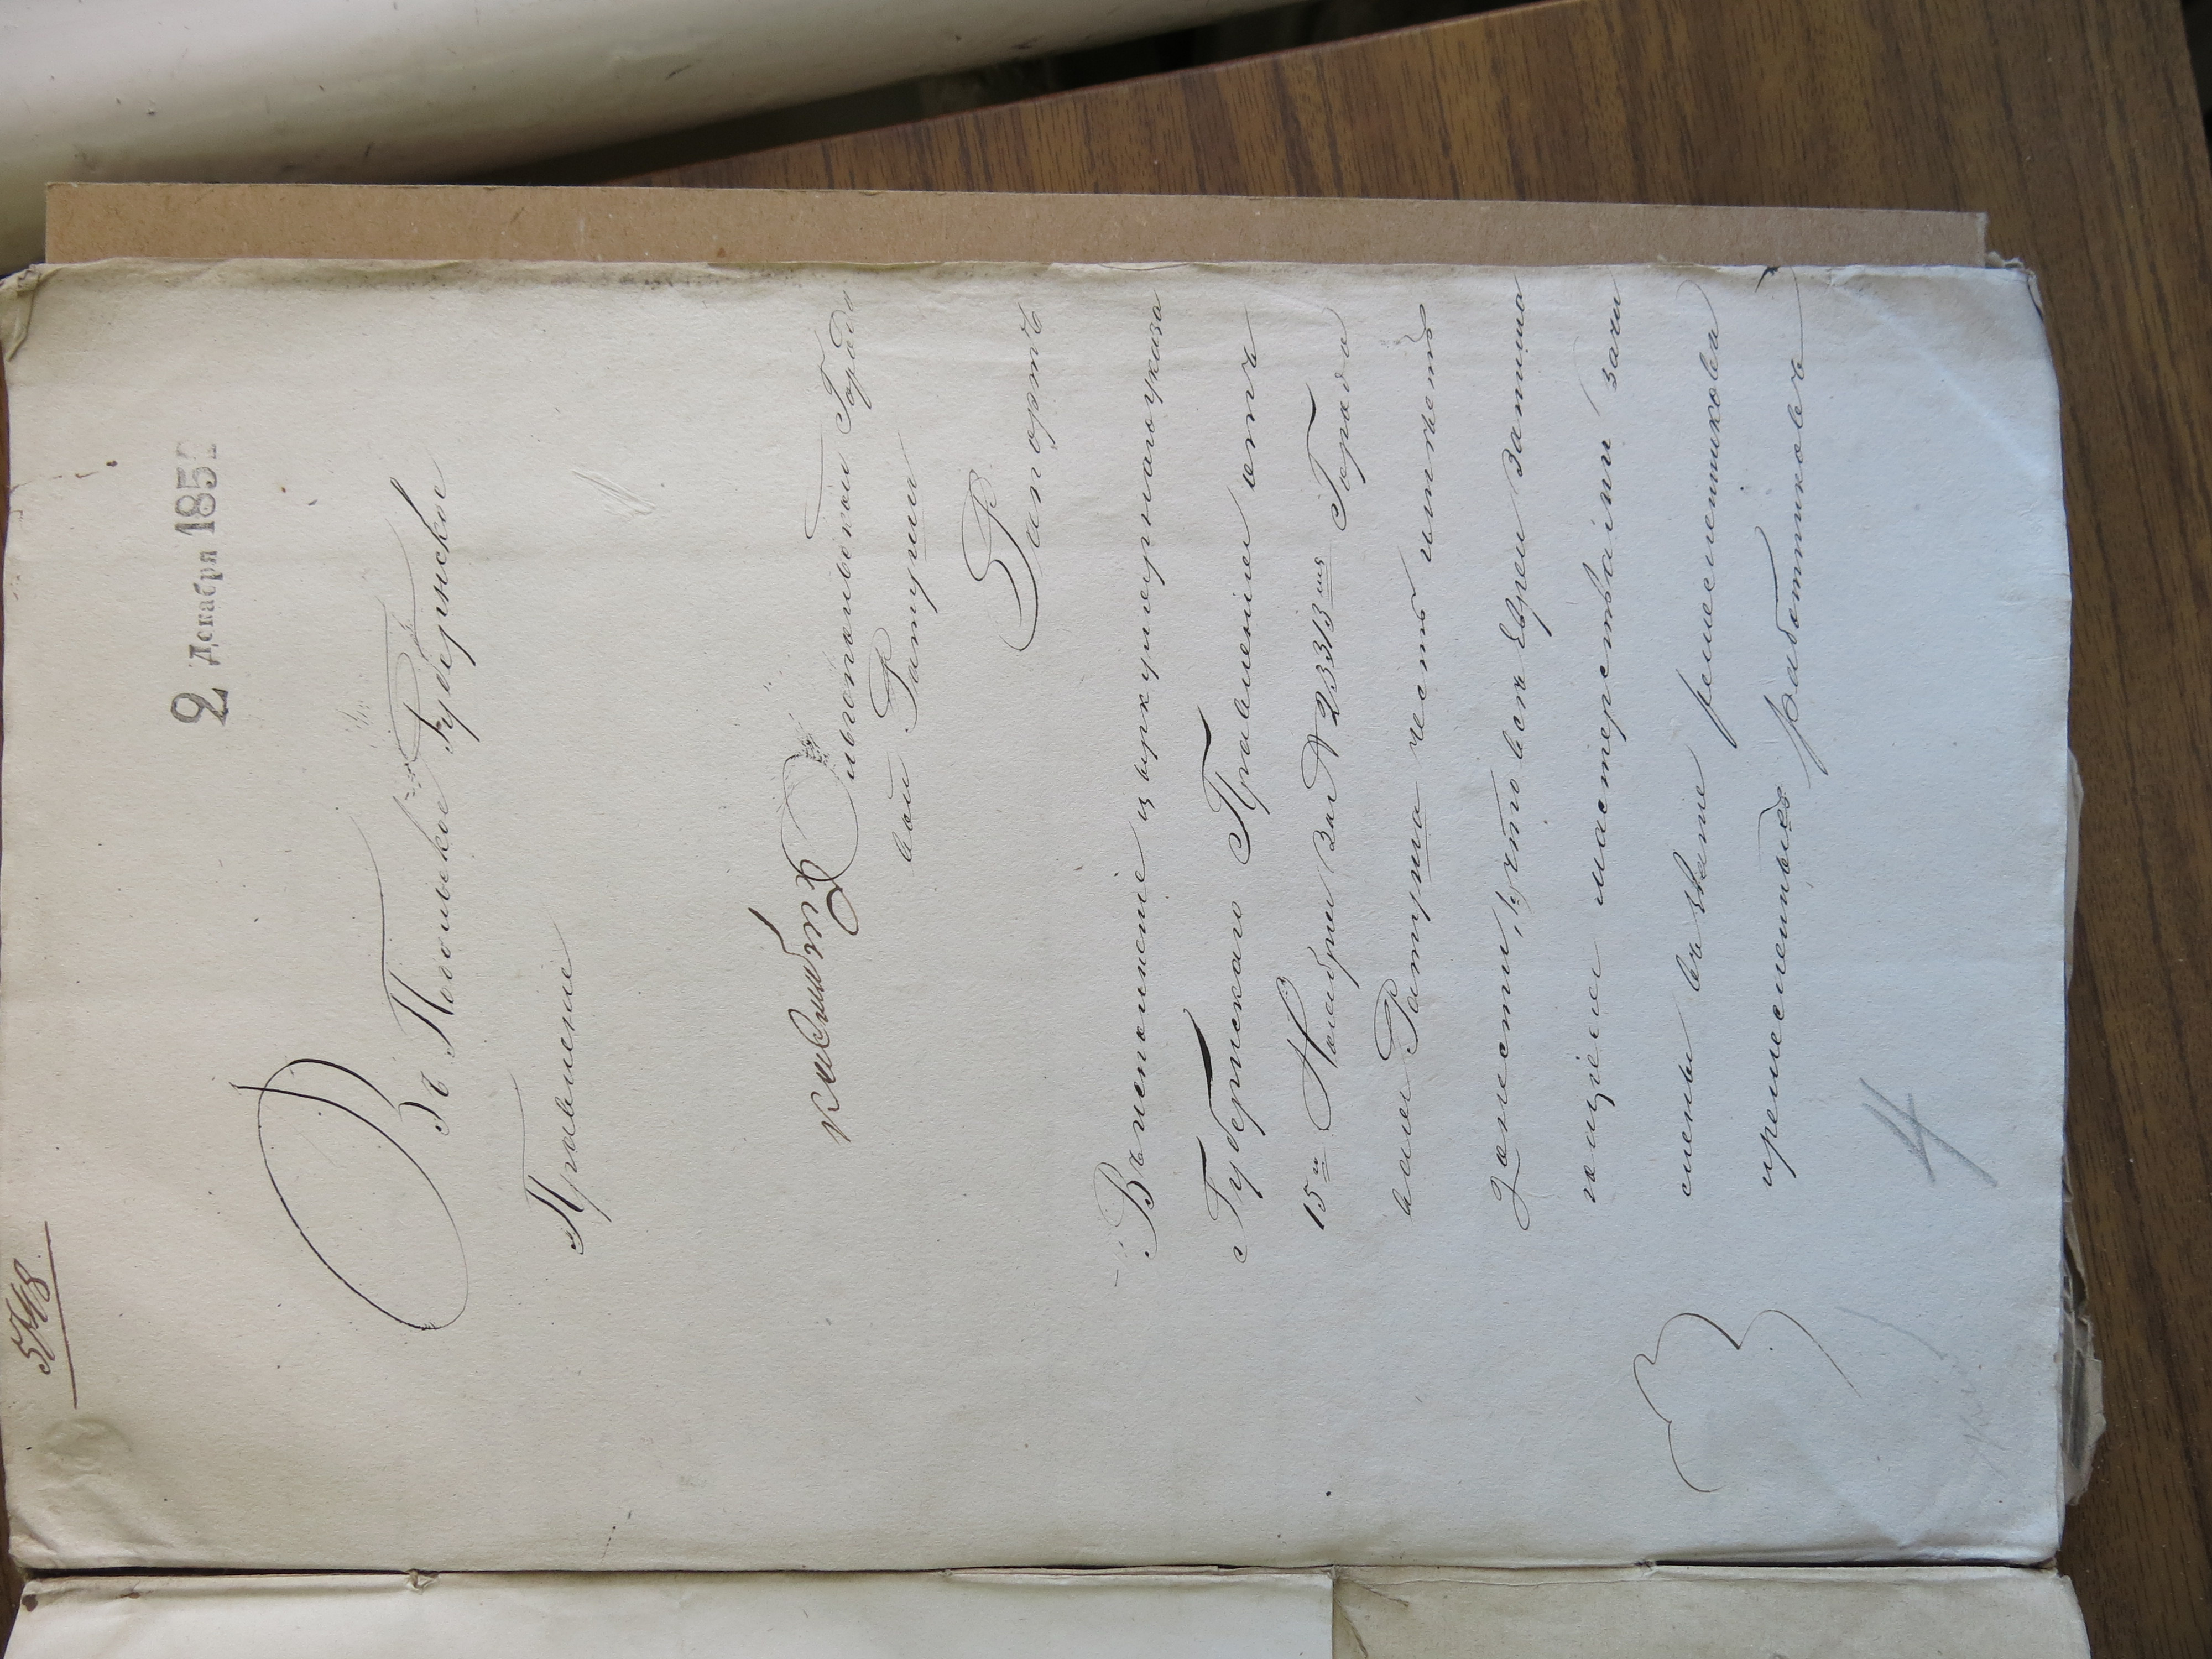 2 Декабря 185
Въ Подольское Губернское
Правленіе
Ольгопольской Городо
вой Ратуши
Рапортъ
Въ исполненіе циркулярнаго указа
Губернскаго Правленія отъ
15го Ноября за № 23313мъ Городо
вая Ратуша честь имеетъ
донести, что все Евреи занима
ющіеся мастерствами зачи
слены въ званіе ремесленниковъ
и ремесленныхъ работниковъ
4